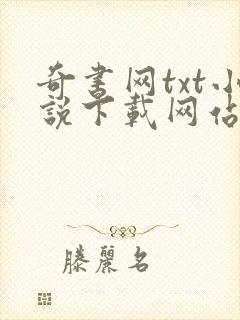 奇书网txt小
説下載网佔
滕麗名